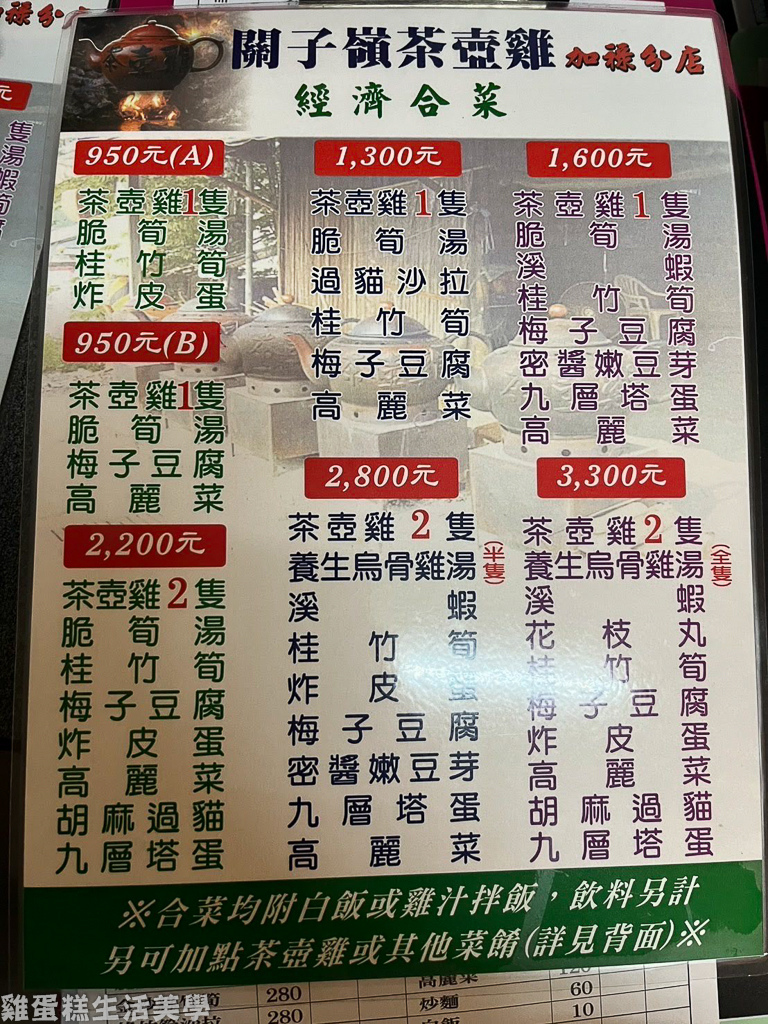 茶壺雞
關子嶺茶壺雞 加祿分店
經濟合菜
950元(A)
茶壺雞1隻
脆筍湯
桂竹筍
炸皮蛋
950元(B)
茶壺雞1隻
脆筍湯
梅子豆腐
高麗菜
2,200元
茶壺雞2隻
脆筍湯
桂竹筍
梅子豆腐
炸皮蛋
高麗菜
胡麻過貓
九層塔蛋
1,300元
茶壺雞1隻
脆筍湯
過貓沙拉
桂竹筍
梅子豆腐
高麗菜
2,800元
茶壺雞2隻
養生烏骨雞湯(半隻)
溪蝦
桂竹筍
炸皮蛋
梅子豆腐
密醬嫩豆芽
九層塔蛋
高麗菜
1,600元
茶壺雞1隻
脆筍湯
溪蝦
桂竹筍
梅子豆腐
密醬嫩豆芽
九層塔蛋
高麗菜
3,300元
茶壺雞2隻
養生烏骨雞湯(全隻)
溪蝦
花枝丸
桂竹筍
梅子豆腐
炸皮蛋
高麗菜
胡麻過貓
九層塔蛋
※合菜均附白飯或雞汁拌飯,飲料另計
另可加點茶壺雞或其他菜餚(詳見背面)※
280
280
高麗菜 120
炒麵 60
白飯 10
雞蛋糕生活美學